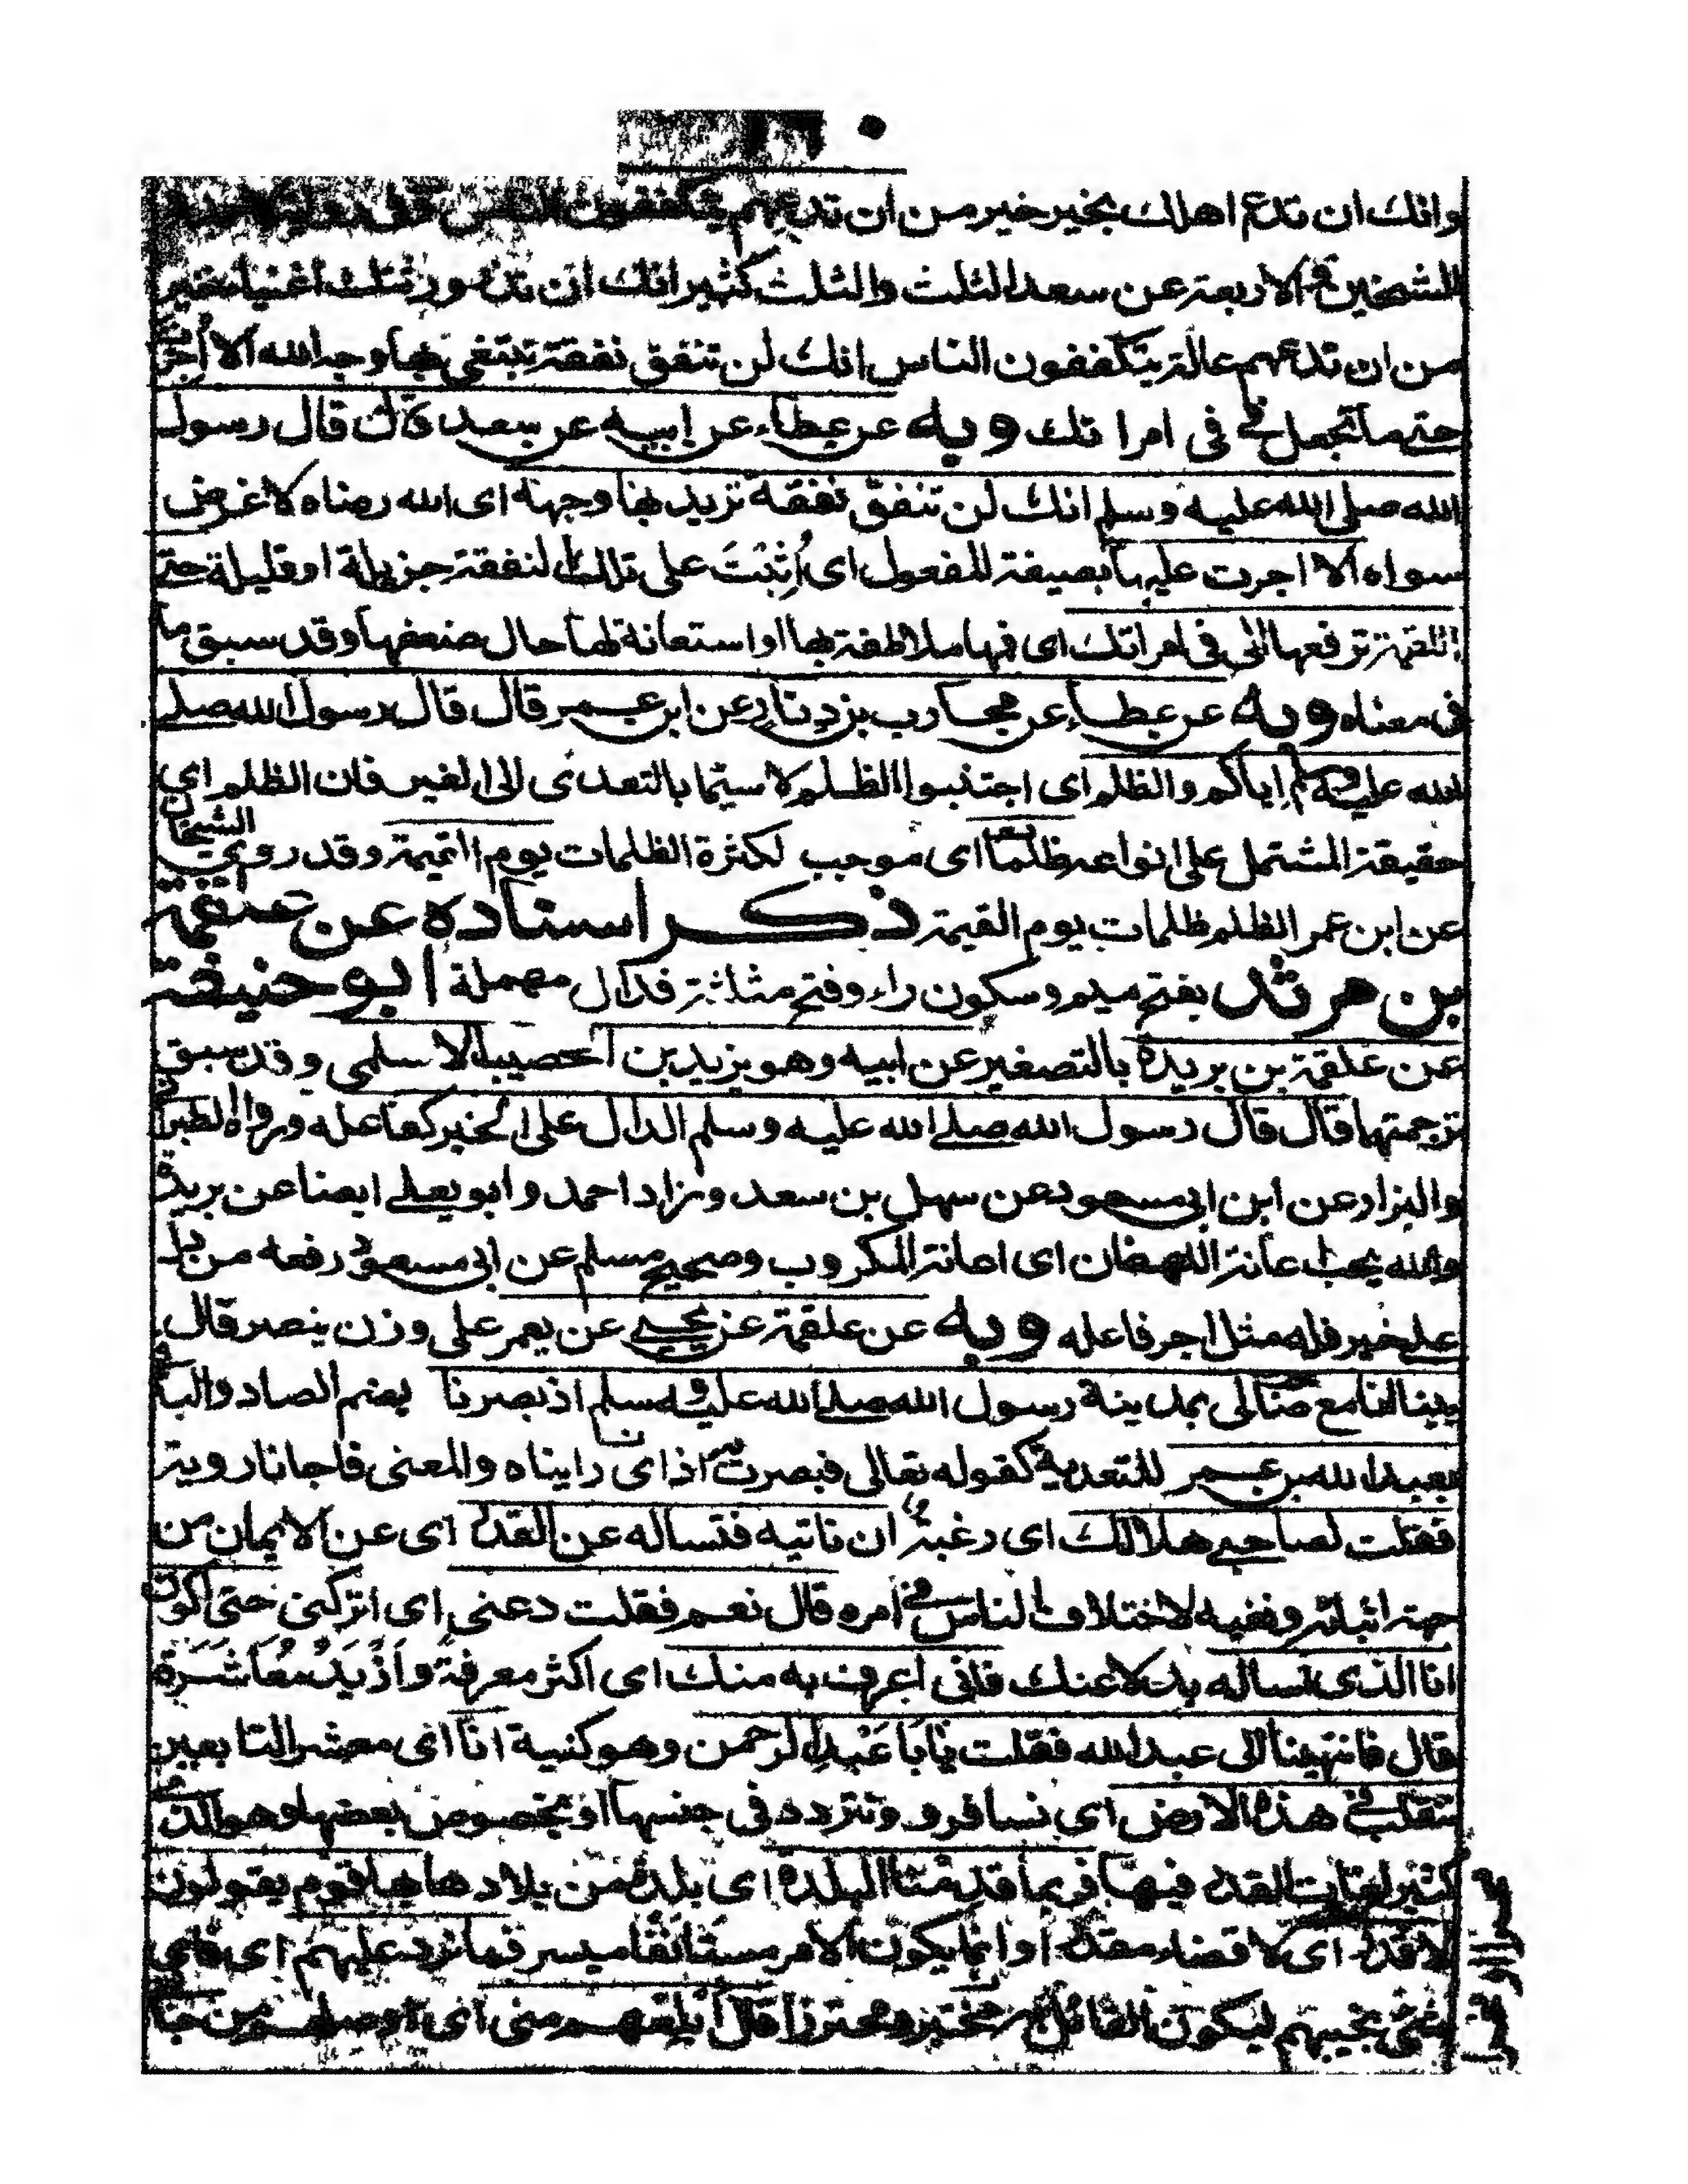 وانك ان تدع اهلك بخير خير من ان تدعهم يتكففون الناس وفى رواية
للشيخين والاربعة عن سعد الثلث والثلث كثير انك ان تدع ورثتك اغنياء خير
من ان تدعهم عالة يتكففون الناس انك لن تنفق نفقة تبتغى بها وجه الله الا اُجرت
حتى ما تجعل فى فى امراتك وبه عن عطاء عن ابيه عن سعد قال قال رسول
الله صلى الله عليه وسلم انك لن تنفق نفقة تريد بها وجهه اى الله رضاه لا غرض
سواه الا اجرت عليها بصيغة المفعول اى اُثِبْتَ على تلك النفقة جزيلة او قليلة حتى
اللقمة ترفعها الى فى امراتك اى فمها ملاطفة بها او استعانة لها حال ضعفها وقد سبق ما
فى معناه وبه عن عطاء عن محارب بن دثار عن ابن عمر قال قال رسول الله صلى
الله عليه وسلم اياكم والظلم اى اجتنبوا الظلم لا سيّما بالتعدى الى الغير فان الظلم اى
حقيقة المشتمل على انواعه ظلمات اى موجب لكثرة الظلمات يوم القيمة وقد روى الشيخان
عن ابن عمر الظلم ظلمات يوم القيمة ذكر اسناده عن علقمة
بن مرثد بفتح ميم وسكون راء وفتح مثلثة فدال مهملة ابو حنيفة
عن علقمة بن بريدة بالتصغير عن ابيه وهو بزيد بن الحصيب الاسلمى وقد سبق
ترجمتها قال قال رسول الله صلى الله عليه وسلم الدال على الخير كفاعله ورواه الطبرا
والبزار عن ابن ابى مسعود عن سهل بن سعد وزاد احمد وابو يعلى ايضا عن بريدة
والله يحب اعانة اللهفان اى اعانة المكروب وصحيح مسلم عن ابى مسعود رفعه من دل
على خير فله مثل اجر فاعله وبه عن علقمة عن يحيى عن يعمر على وزن ينصر قال
بينا انا مع صاحب لى بمدينة رسول الله صلى الله عليه وسلم اذ بصرنا بضم الصاد والباء
بعبد الله بن عمر للتعدية كقوله تعالى فبصرت به اذ اى رايناه والمعنى فاجانا روية
فقلت لصاحبى هل لك اى رغبة ان ناتيه فنساله عن القدر اى عن الايمان من
جهة اثباته ونفيه لاختلاف الناس فى امره قال نعم فقلت دعنى اى اتركنى حتى اكون
انا الذى اساله بدلا عنك فانى اعرف به منك اى اكثر معرفة وازيد معاشرة
قال فانتهينا الى عبد الله فقلت يا ابا عبد الرحمن وهو كنية انا اى معشر التابعين
نتقلب فى هذه الارض اى نسافر و ونتردد فى جنسها او بخصوص بعضها وهو الذى
فيها فربما قدمنا البلدة اى بلدة من بلادها بها قوم يقولون
لا قدر اى لا قضاء مقدر وانما يكون الامر مستانفا ميسر فما نرد عليهم اى فاى
شئ نجيبهم ليكون قال ابلغهم منى اى